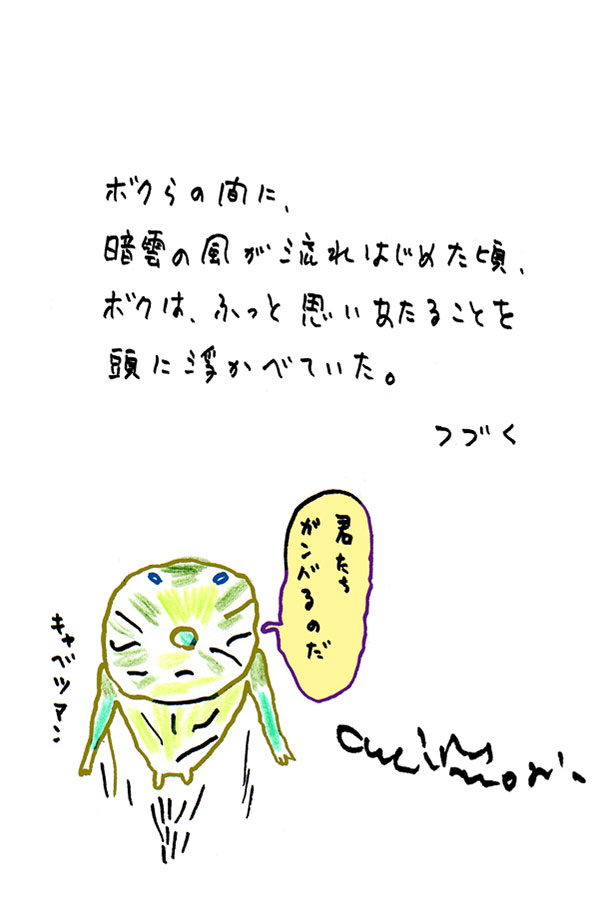 ボクらの間に、
暗雲の風が流れはじめた頃、
ボクは、ふっと思いあたることを
頭に浮かべていた。
つづく
君たち
ガンベるのだ
キャベツマン